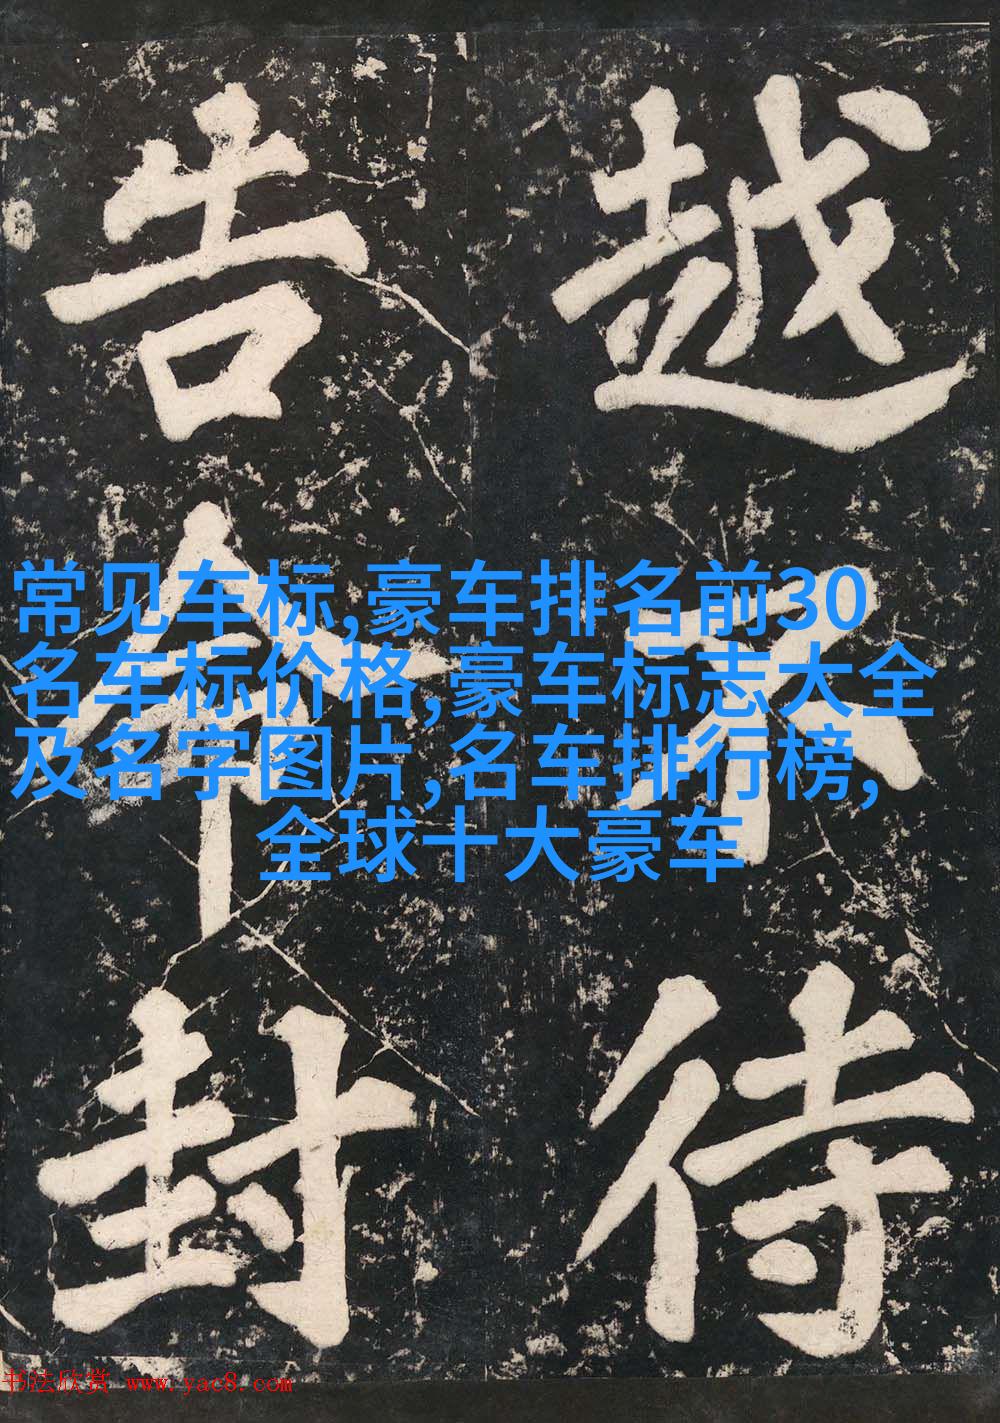 越不待
告命封
常见车标,豪车排名前30
名车标价格,豪车标志大全
及名字图片,名车排行榜,
全球十大豪车
书法欣赏 www.yac8.com